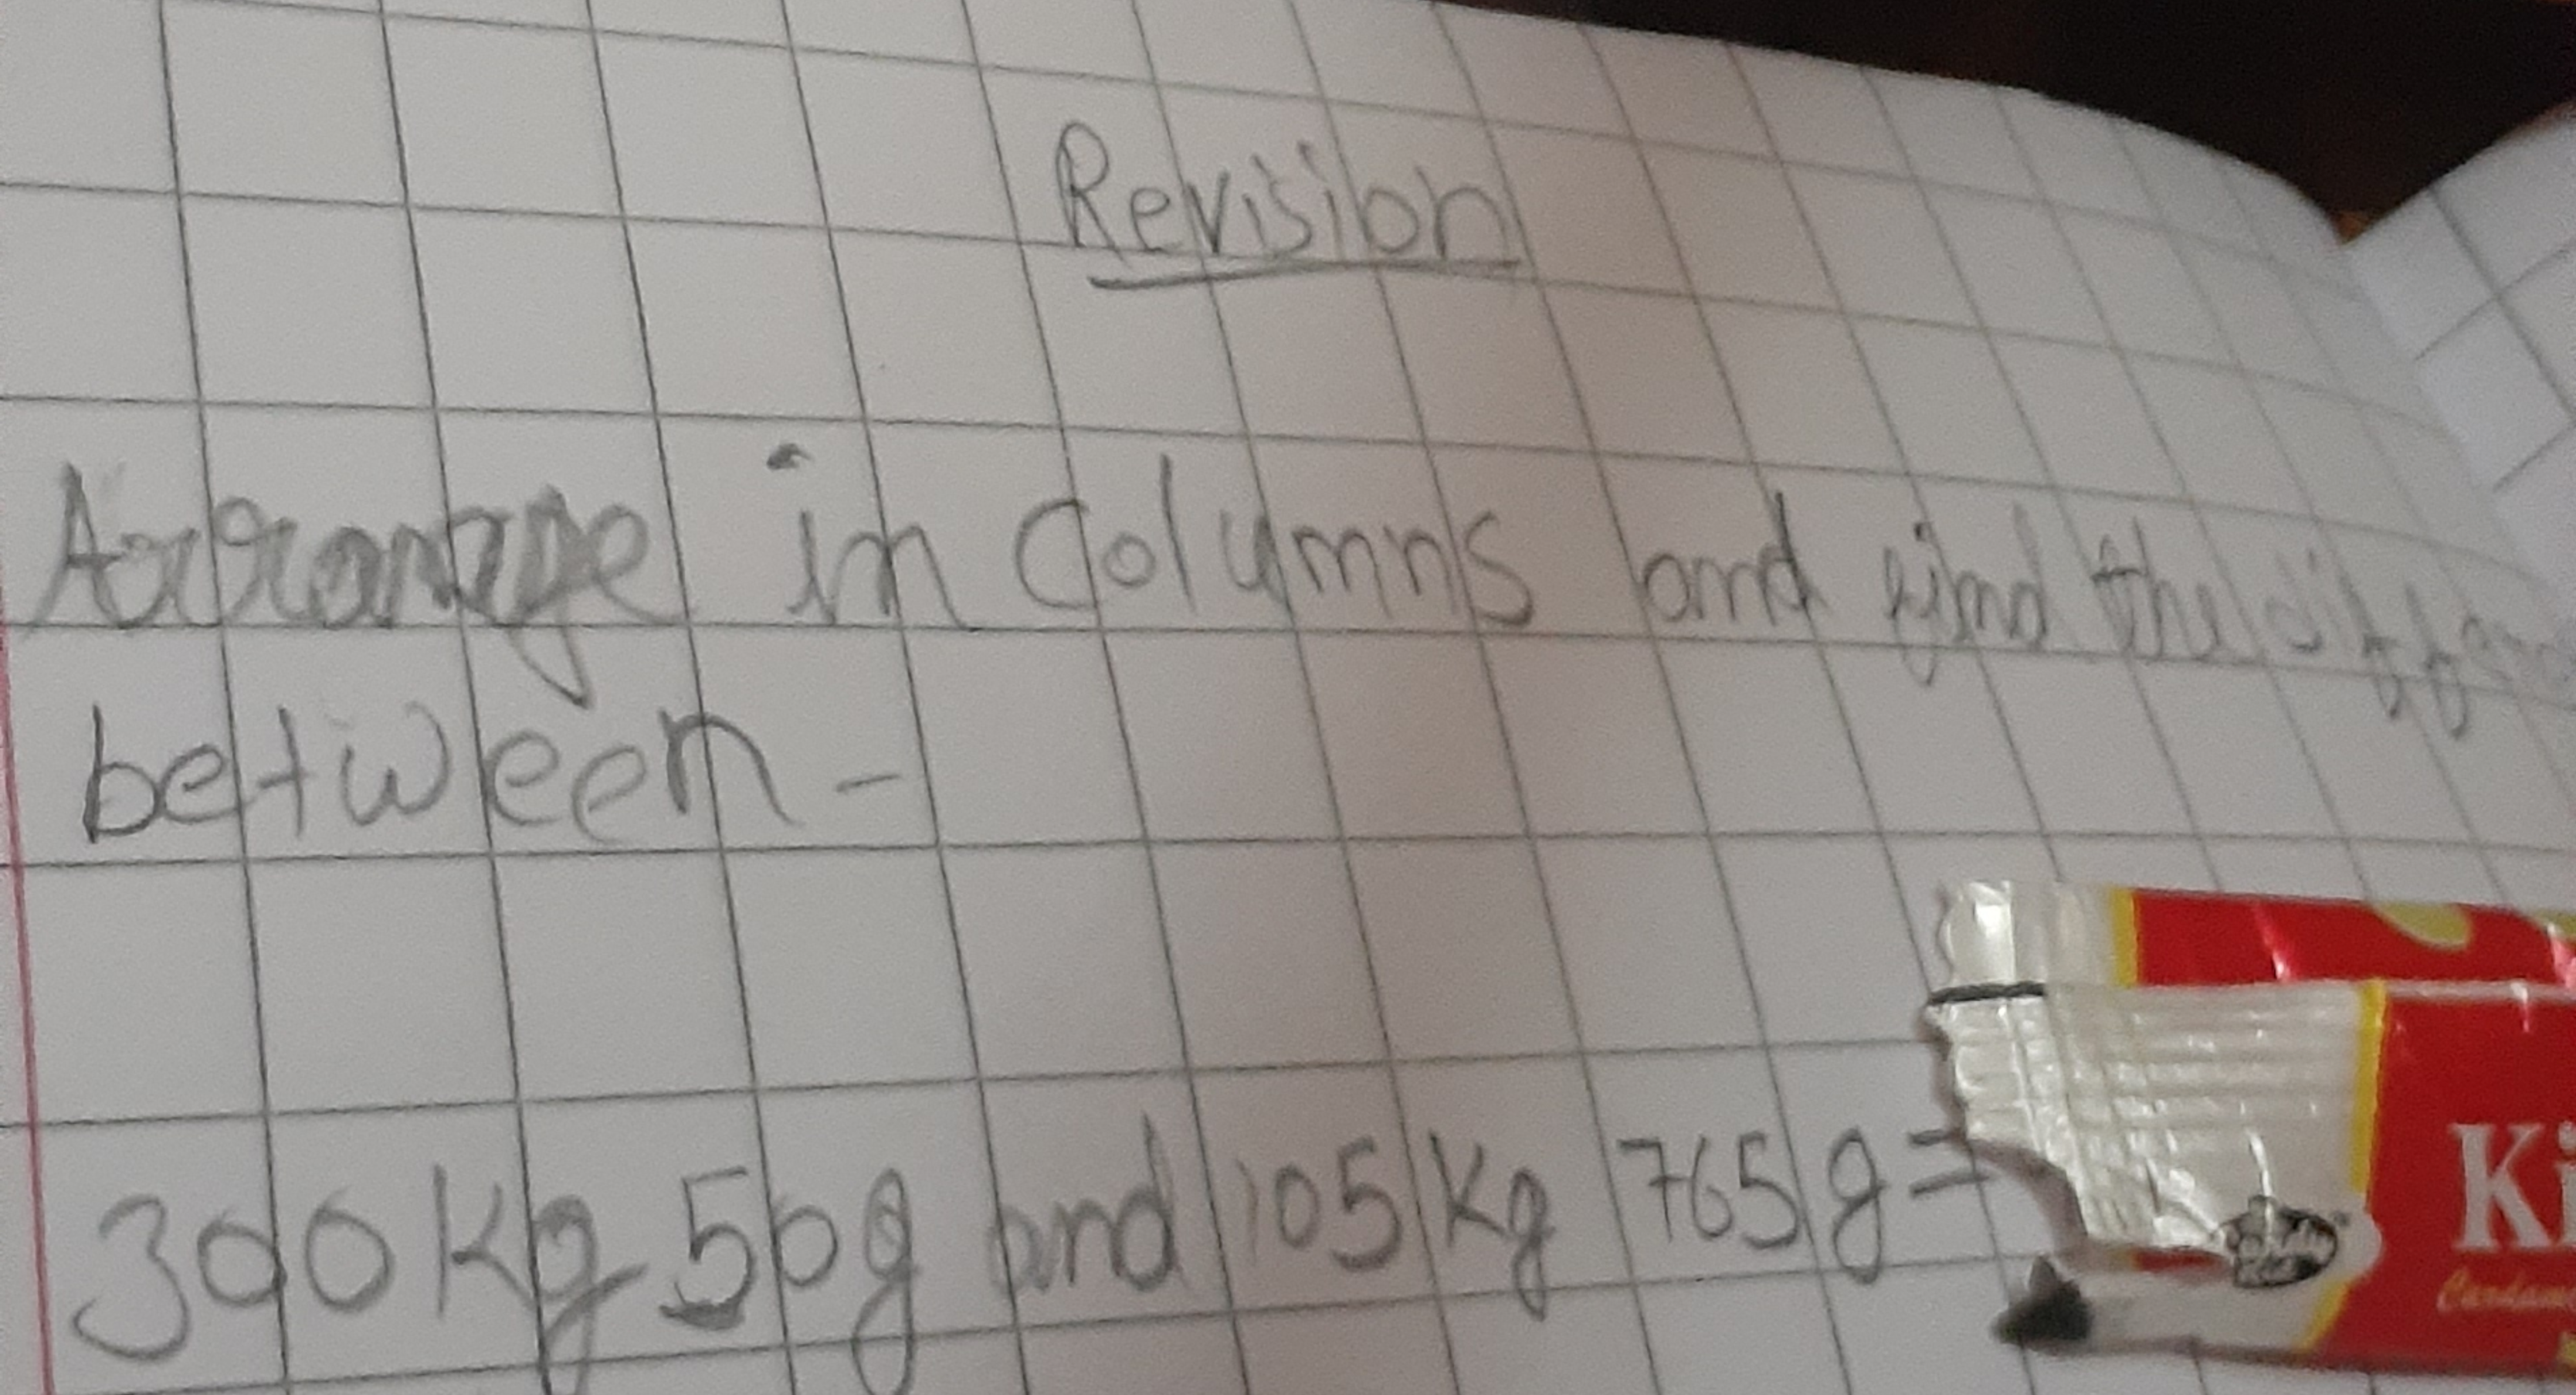 Revision
Arrange in Columns and find the
between -
300 Kg 50 g and 105 Kg 765 g =
Ki